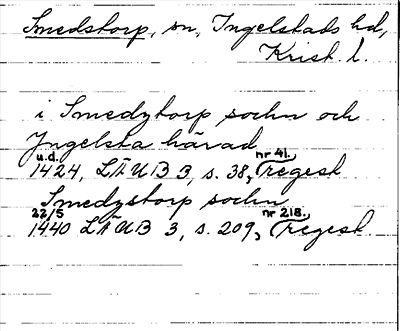 Smedstorp, sn, Ingelstads hd,
Krist. l.
i Smedztorp sochn och
Jngelsta härad
u.d. nr 41.
1424, LÄUB 3, s. 38, regest
Smedzstorp sochn
22/5 nr 218.
1440 LÄUB 3, s. 209, regest